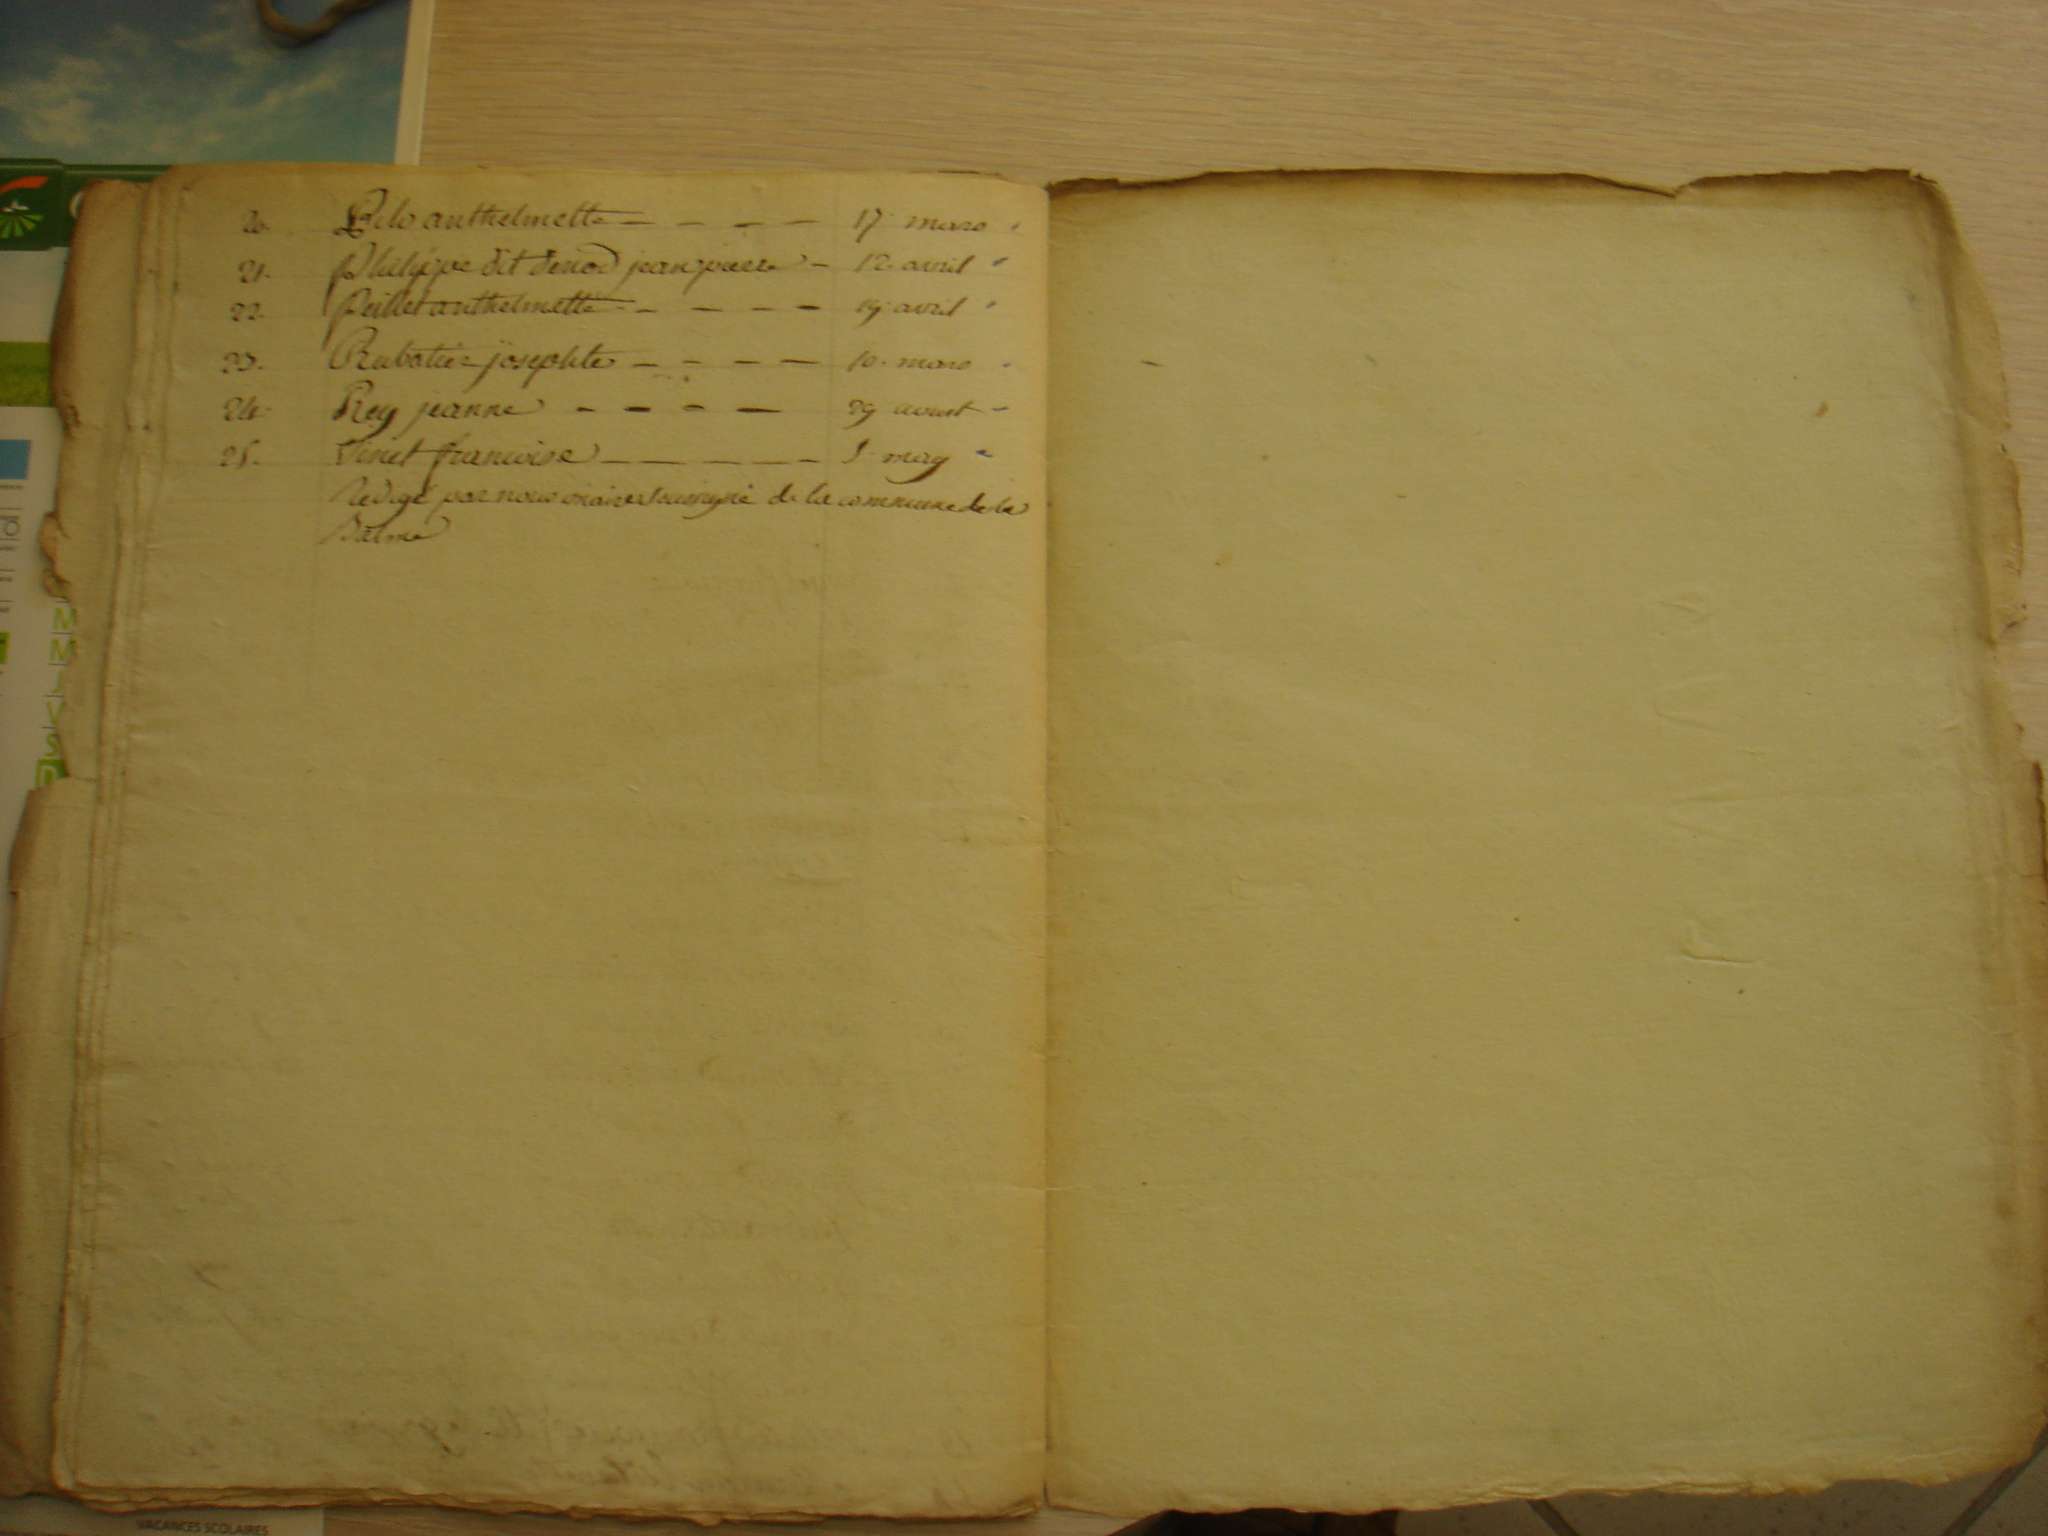 20. Pilo anthelmette 17 mars
21. Philippe dit denod jean pierre 12 avril
22. Peillet anthelmette 19 avril
23. Rubatier josephte 10. mars
24. Rey jeanne 29 aoust
25. Vinet francoise 5 may
Redigé par nous maire soussigné de la commune de la
Balme
M
M
J
V
S
VACANCES SCOLAIRES